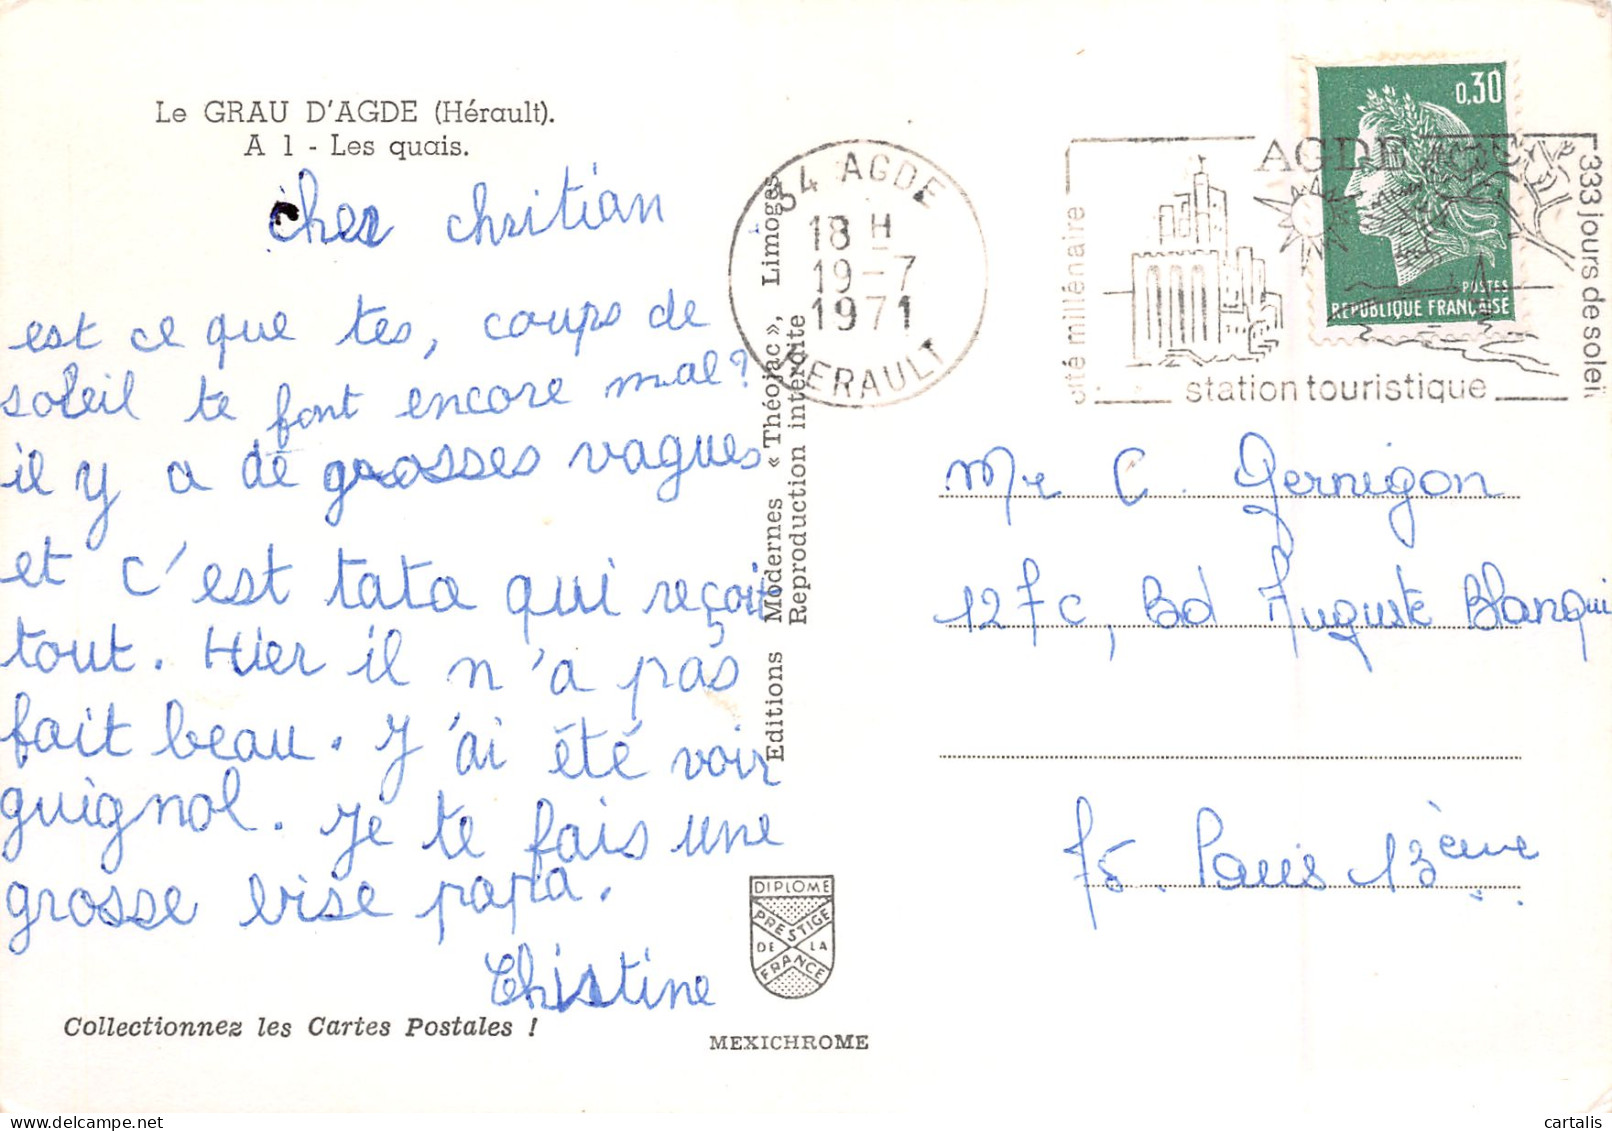 Le GRAU D'AGDE (Hérault).
A 1 - Les quais.
cher chritian
est ce que tes, coups de
soleil te font encore mal?
il y a de grosses vagues
et c'est tata qui reçoit
tout. Hier il n'a pas
fait beau. J'ai été voir
guignol. Je te fais une
grosse bise papa.
Christine
Collectionnez les Cartes Postales !
Editions Modernes « Théojac », Limoges
Reproduction interdite
DIPLOME
PRESTIGE
DE LA
FRANCE
MEXICHROME
34 AGDE
18 H
19-7
1971
HERAULT
cité millénaire
AGDE
333 jours de soleil
station touristique
0,30
POSTES
REPUBLIQUE FRANÇAISE
Mr C. Gernigon
127c, Bd Auguste Blanqui
75. Paris 13ème
cartalis